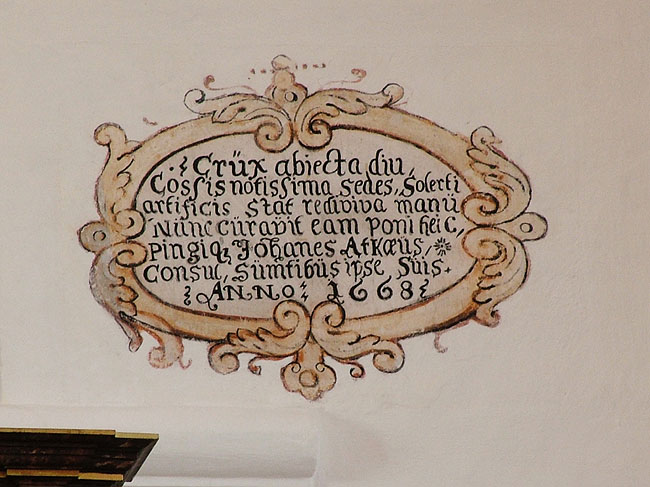 Crüx abiecta diu,
Cossis notissima sedes, Solerti
artificis stat rediviva manu
Nunc cüravit eam poni heic,
pingiq3 Johanes Atkœus,
Consul, Sümtibüs ipse Süis.
ANNO 1668